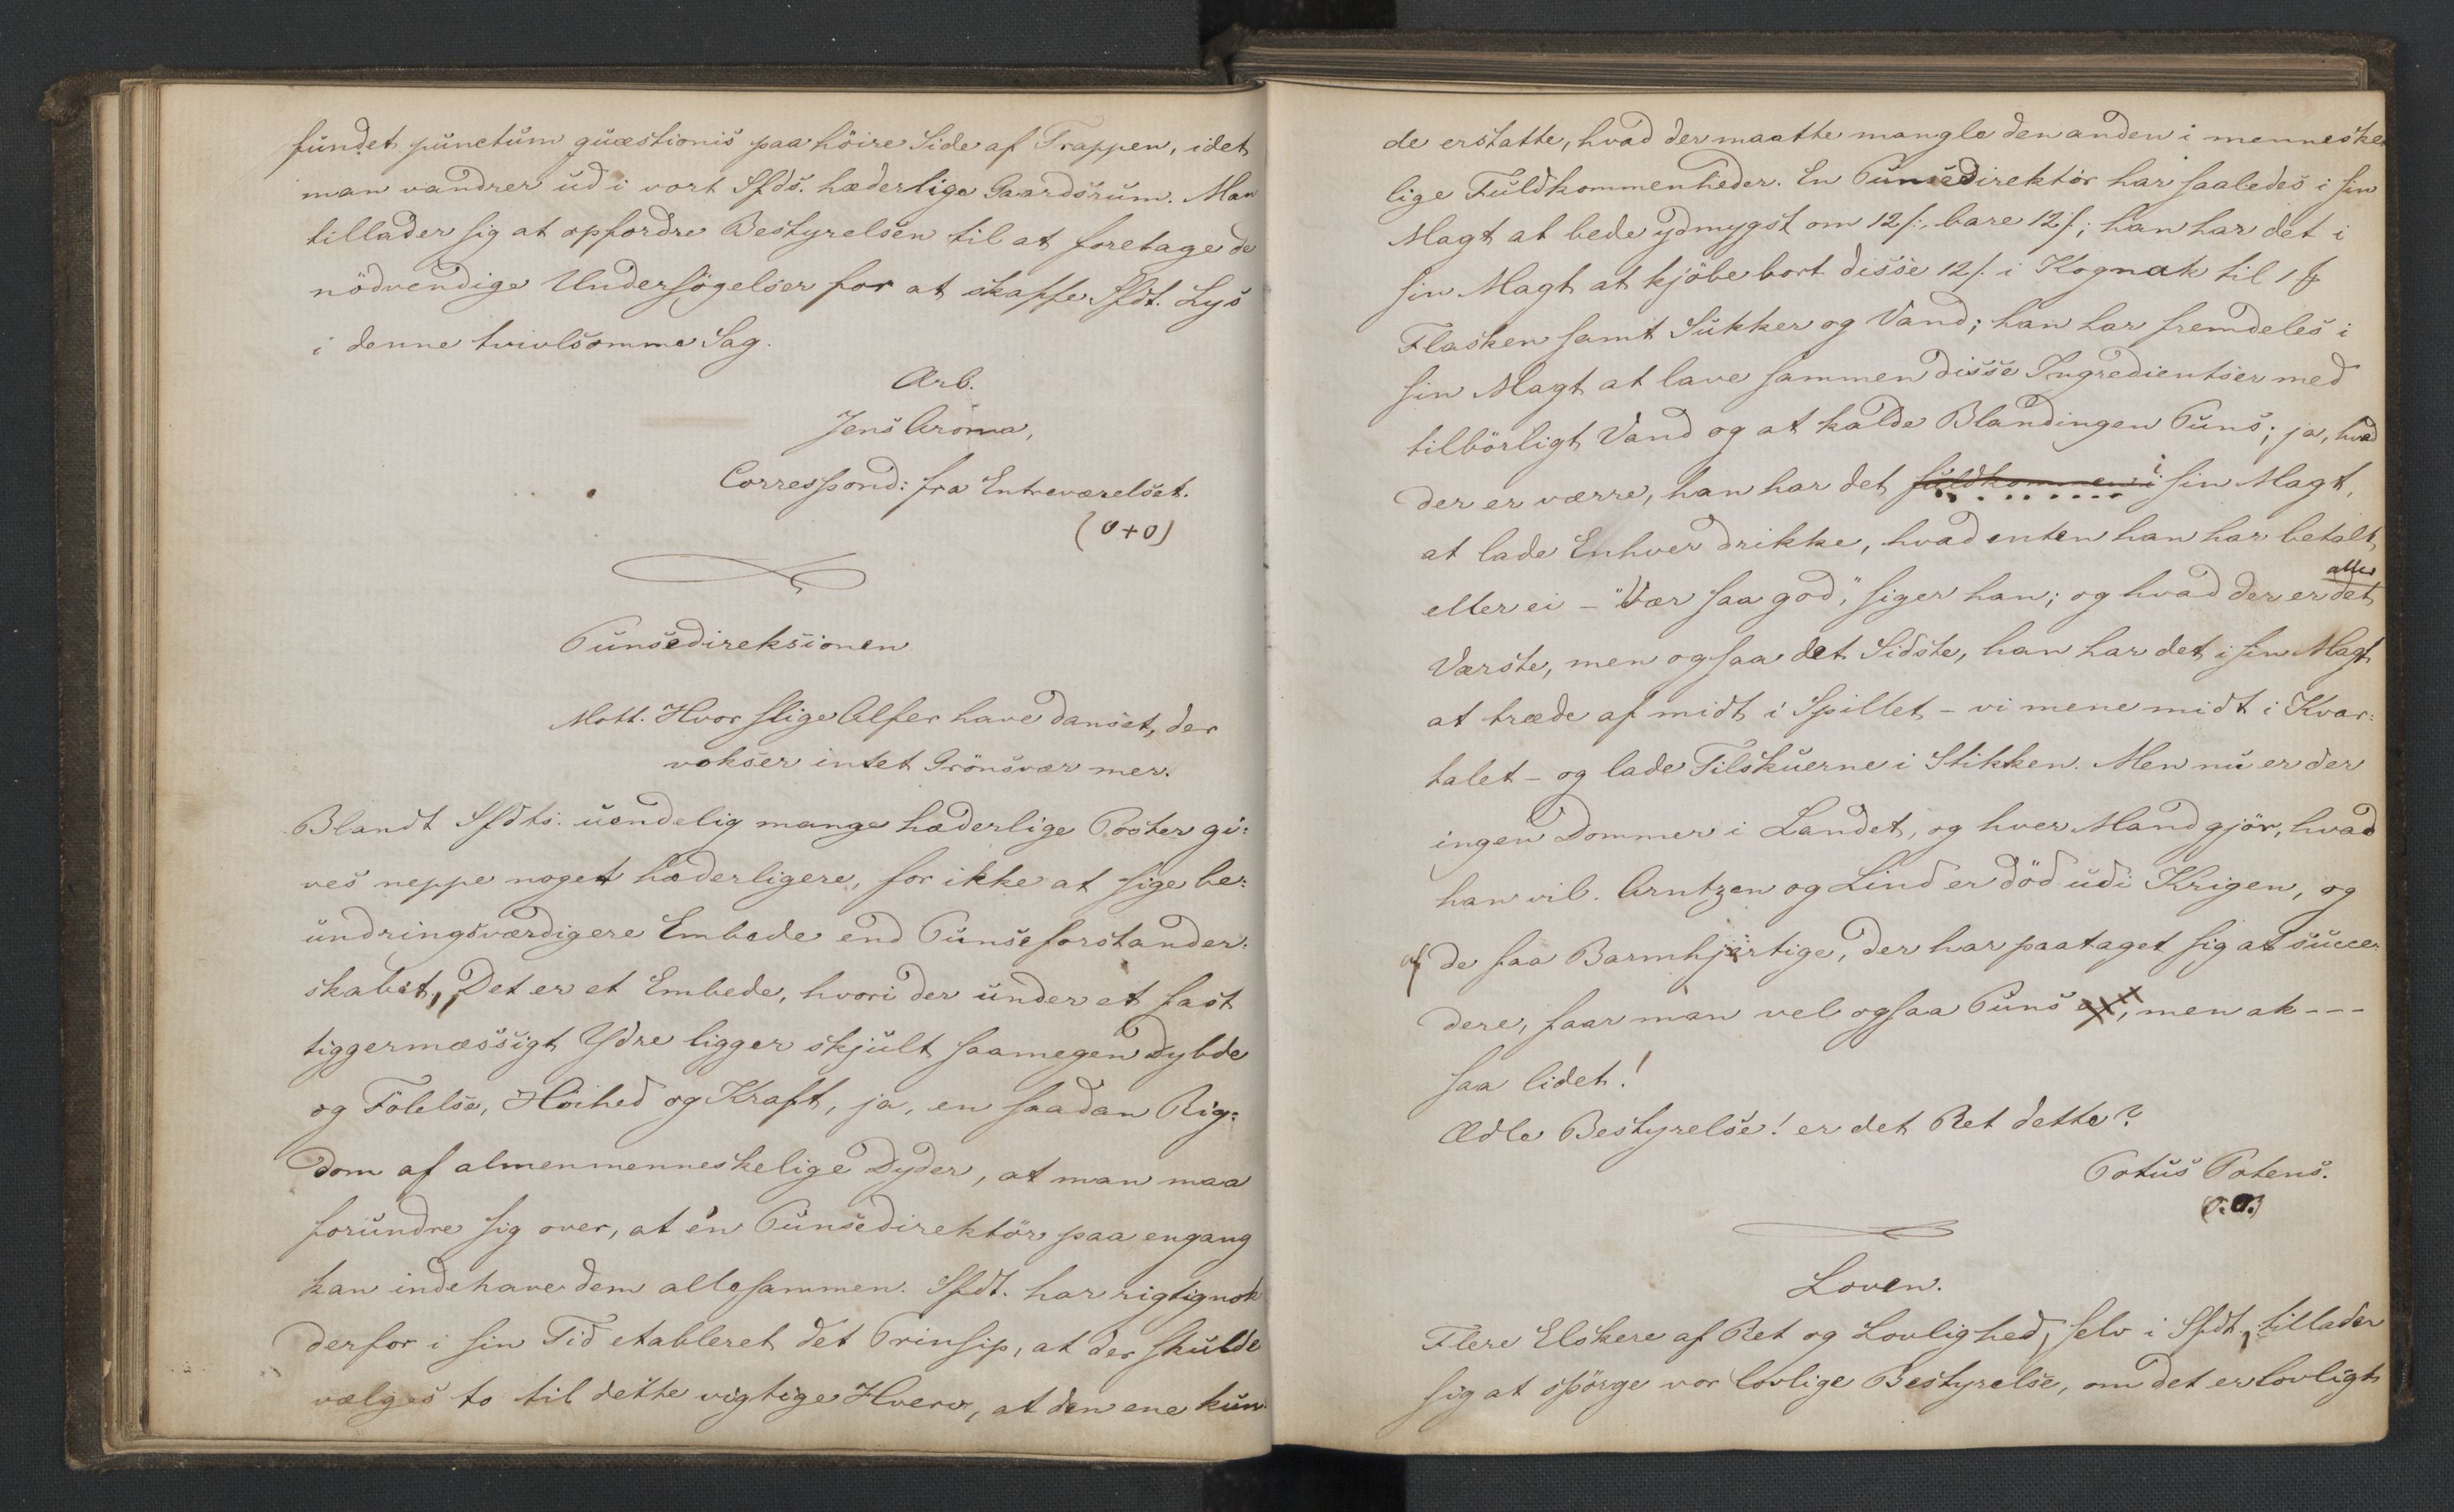 fundet punctum quæstionis paa höire Side af Trappen, idet
man vandrer ud i vort Sfds. hæderlige Gaardsrum. Man
tillader sig at opfordre Bestyrelsen til at foretage de
nödvendige Undersögelser for at skaffe Sfdt. Lys
i denne tvivlsomme Sag.
Ærb.
Jens Aroma,
Correspond: fra Entreværelset.
(0+0)
Punsedireksionen
Mott. Hvor slige Alfer have danset, der
vokser intet Grönsvær mer.
Blandt Sfdts. uendelig mange hæderlige Poster gi:
ves neppe noget hæderligere, for ikke at sige be:
undringsværdigere Embede end Punseforstander:
skabet. Det er et Embede, hvori der under et fast
tiggermæssigt Ydre ligger skjult saamegen Dybde
og Fölelse, Höihed og Kraft, ja, en saadan Rig:
dom af almenmenneskelige Dyder, at man maa
forundre sig over, at én Punsedirektör paa engang
kan indehave dem allesammen. Sfdt. har rigtignok
derfor i sin Tid etableret det Prinsip, at der skulde
vælges to til dette vigtige Hverv, at den ene kun:
de erstatte, hvad der maatte mangle den anden i menneske
lige Fuldkommenheder. En Punsedirektör har saaledes i sin
Magt at bede ydmygst om 12 /:, bare 12 /:; han har det i
sin Magt at kjöbe bort disse 12 /: i Kognak til 1 ₰
Flasken samt Sukker og Vand; han har fremdeles i
sin Magt at lave sammen disse Ingredientser med
tilbörligt Vand og at kalde Blandingen Puns; ja, hvad
der er værre, han har det fuldkommen i sin Magt,
at lade Enhver drikke, hvad enten han har betalt
eller ei – "Vær saa god," siger han; og hvad der er det aller
Værste, men ogsaa det Sidste, han har det i sin Magt
at træde af midt i Spillet – vi mene midt i Kvar:
talet – og lade Tilskuerne i Stikken. Men nu er der
ingen Dommer i Landet, og hver Mand gjör, hvad
han vil. Arntzen og Lind er död udi Krigen, og
af de faa Barmhjertige, der har paataget sig at succe:
dere, faar man vel ogsaa Puns af, men ak ---
saa lidet!
Ædle Bestyrelse! er det Ret dette?
Potus Potens.
Loven.
Flere Elskere af Ret og Lovlighed, selv i Sfdt, tillader
sig at spörge vor lovlige Bestyrelse, om det er lovligt